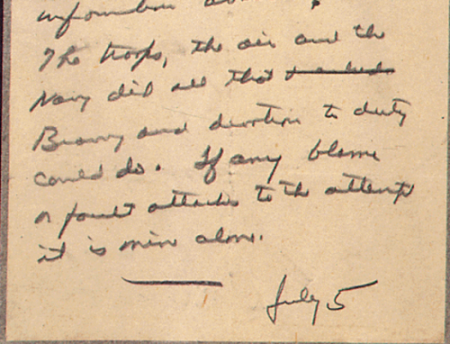 information
The troops, the air and the
Navy did all that
Bravery and devotion to duty
could do. If any blame
or fault attaches to the attempt
it is mine alone.
July 5